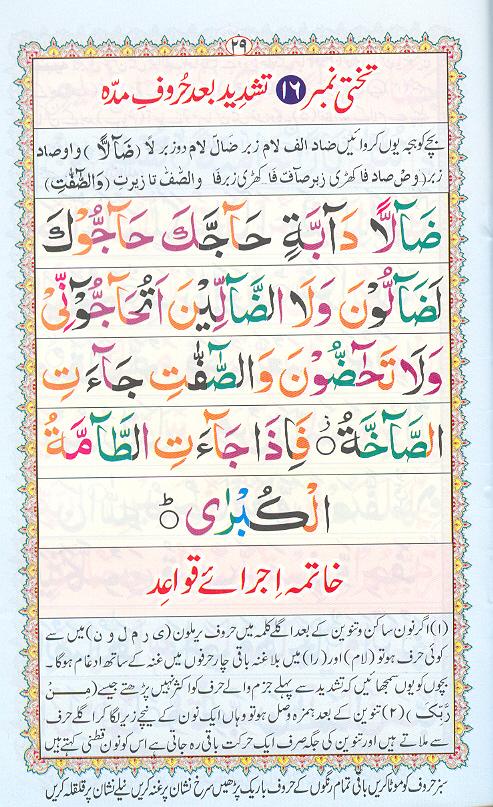 ۲۹
تختی نمبر ۱۶ تشدید بعد حُروفِ مدّہ
بچے کو ہجے یوں کروائیں ضاد الف لام زبر ضَآلّ لام دو زبر لاً (ضَآلًّا) واو صاد
زبر (وَصْ صاد فا کھڑی زبر صٰٓافّ فا کھڑی زبر فٰا وَالصّٰٓفّٰ تا زیر تِ (وَالصّٰٓفّٰتِ)
ضَآلًّا دَآبَّةٍ حَآجَّكَ حَآجُّوْكَ
لَضَآلُّوْنَ وَلَا الضَّآلِّيْنَ اَتُحَآجُّوْٓنِّيْ
وَلَا تَحٰٓضُّوْنَ وَالصّٰٓفّٰتِ جَآءَتِ
الصَّآخَّةُ ۝ز فَاِذَا جَآءَتِ الطَّآمَّةُ
الْكُبْرٰى ۝ط
خاتمہ اِجرائے قواعِد
(۱) اگر نون ساکن و تنوین کے بعد اگلے کلمہ میں حروف یرملون (ی ر م ل و ن) میں سے
کوئی حرف ہو تو (لام) اور (را) میں بلا غنہ باقی چار حرفوں میں غنہ کے ساتھ ادغام ہوگا۔
بچوں کو یوں سمجھائیں کہ تشدید سے پہلے جزم والے حرف کو اکثر نہیں پڑھتے جیسے (مِنْ
رَّبِّكَ) (۲) تنوین کے بعد ہمزہ وصل ہو تو وہاں ایک نون کے نیچے زیر لگا کر اگلے حرف
سے ملاتے ہیں اور تنوین کی جگہ صرف ایک حرکت باقی رہ جاتی ہے اس کو نون قطنی کہتے ہیں
سبز حروف کو موٹا کریں باقی تمام رنگوں کے حروف باریک پڑھیں سرخ نشان پر غنہ کریں نیلے نشان پر قلقلہ کریں